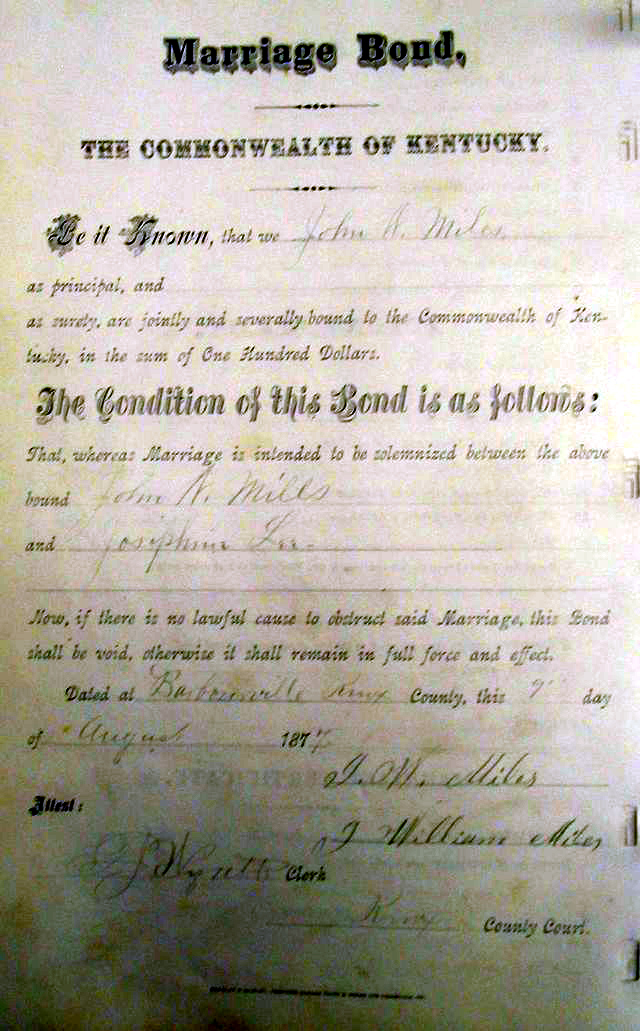 Marriage Bond,
THE COMMONWEALTH OF KENTUCKY.
Be it Known, that we John W. Miles
as principal, and
as surety, are jointly and severally bound to the Commonwealth of Ken-
tucky, in the sum of One Hundred Dollars.
The Condition of this Bond is as follows:
That, whereas Marriage is intended to be solemnized between the above
bound John W. Mills
and Josephine Lee
Now, if there is no lawful cause to obstruct said Marriage, this Bond
shall be void, otherwise it shall remain in full force and effect.
Dated at Barbourville Knox County, this 9" day
of August 1877
J. W. Miles
Attest:
J William Miles
Clerk
Knox County Court.